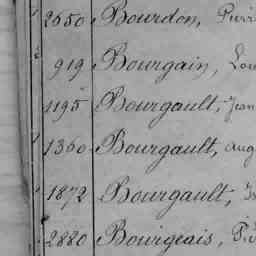 2550 Bourdon, Pierre
919 Bourgain, Lou
1195 Bourgault, Jean
1350 Bourgault, Aug
1872 Bourgault,
2880 Bourgeais,